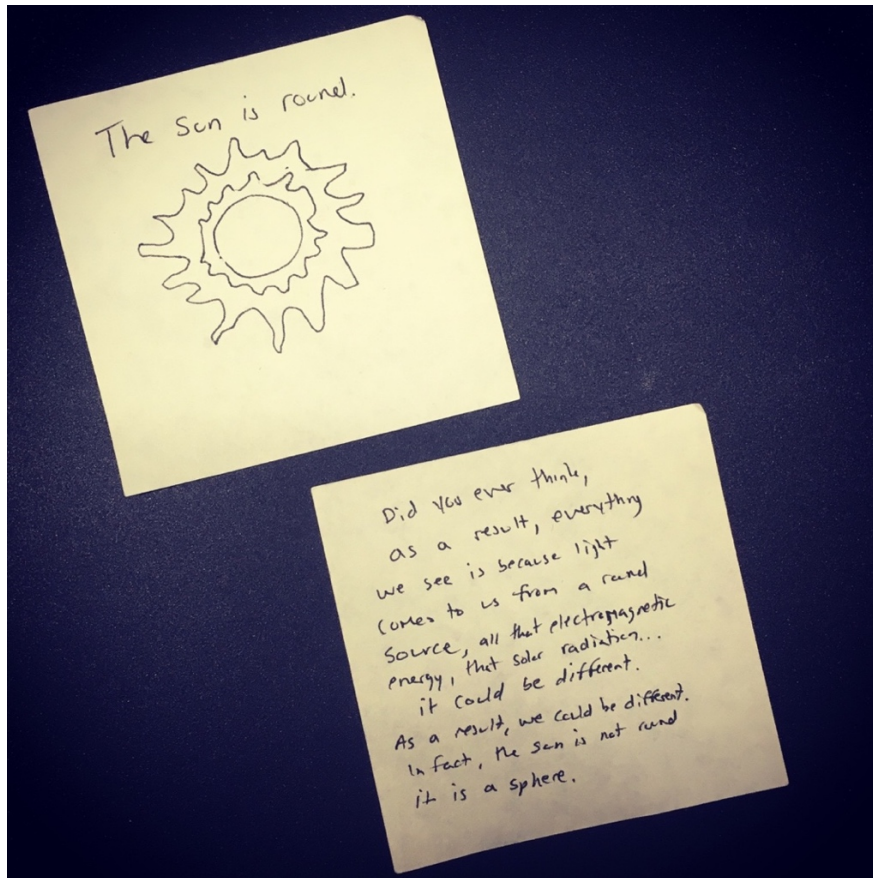 The Sun is round.
Did you ever think,
as a result, everything
we see is because light
comes to us from a round
source, all that electromagnetic
energy, that solar radiation...
it could be different.
As a result, we could be different.
In fact, the sun is not round
it is a sphere.